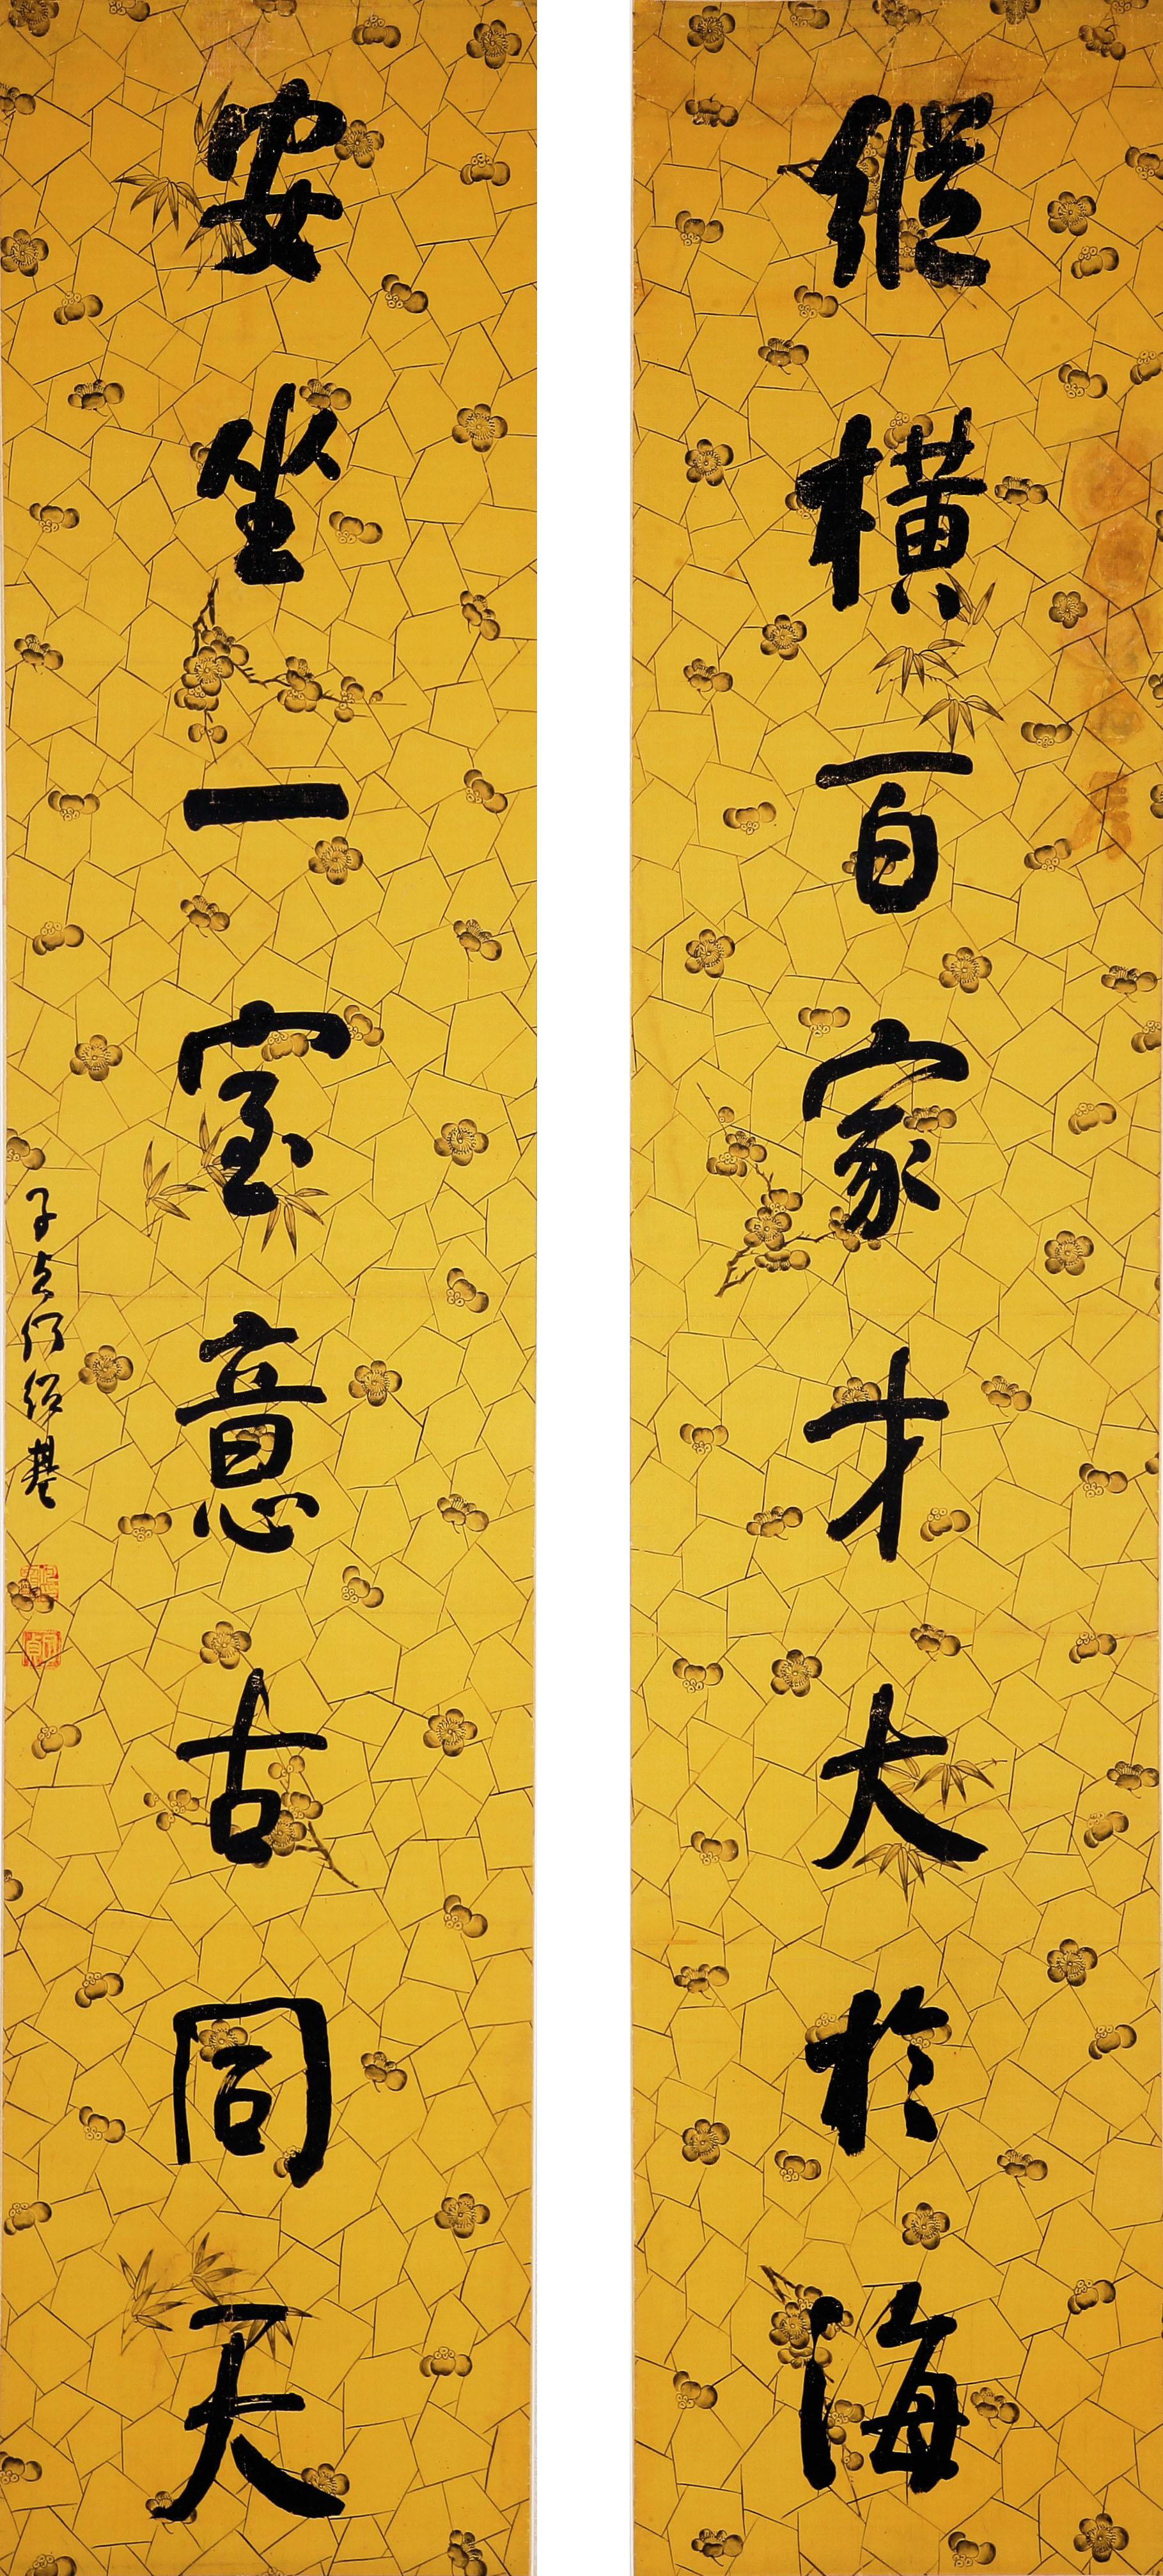 縱橫百家才大於海
安坐一室意古同天
子貞何紹基